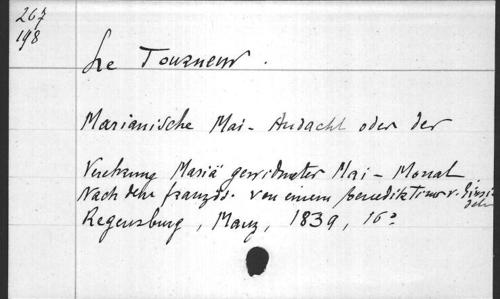 267
198
Le Tourneur.
Marianische Mai-Andacht oder der
Verehrung Mariä gewidmeter Mai-Monat
Nach dem französ. von einem Benediktiner v. Einsie
deln
Regensburg, Manz, 1839, 16°